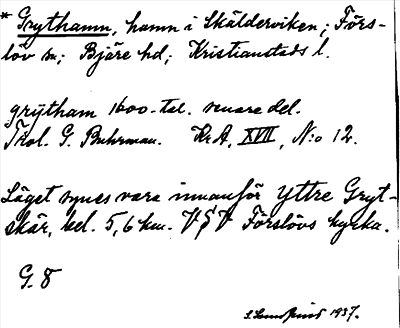 * Grythamn, hamn i Skälderviken; Förs-
löv sn; Bjäre hd; Kristianstads l.
grÿtham 1600-tal. senare del.
Trol. G. Buhrman. Kr. A, XVII, N:o 12.
Läget synes vara innanför Yttre Gryt-
skär, bel. 5,6 km. VSV Förslövs kyrka.
G. 8
1937.